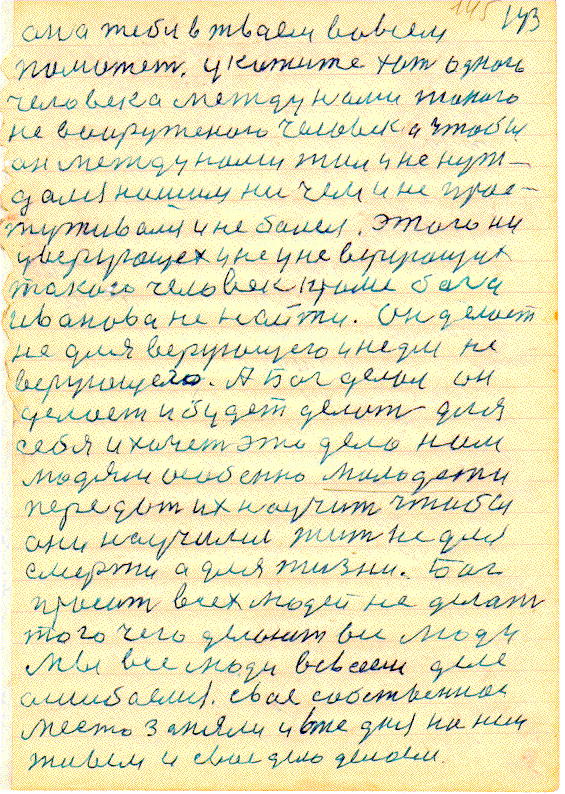 145 143
она тебя в твоем во всем
поможет. укажите хот одного
человека между нами такого
не вооруженого человека чтобы
он между нами жил и не нуж-
дался нашим ни чем и не прос-
туживался и не болел. Этого ни
у верующех и не у не верующих
такого человек кроме бога
Иванова не найти. Он делает
не для верующего и не для не
верующего. А Бог делал он
делает и будет делат для
себя и хочет это дело нам
людям особенно молодежи
передат их научит чтобы
они научилис жит не для
смерти а для жизни. Бог
просит всех людей не делат
того чего делают все люди
Мы все люди во всем деле
ошибаемся. свое собственное
место заняли и вже дня на нем
живем и свое дело делаем.